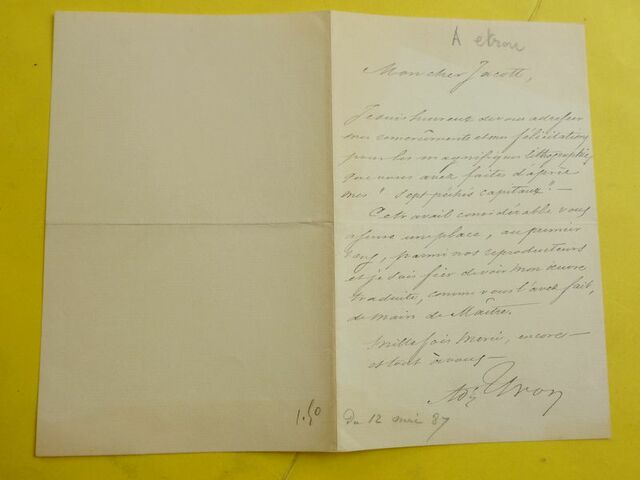 A etron
Mon cher Jacott,
Je suis heureux de vous adresser
mes remerciments et mes félicitations
pour les magnifiques lithographies
que vous avez faites d'après
mes " sept péchés capitaux " —
Ce travail considérable vous
assure une place, au premier
rang, parmi nos reproducteurs
et je suis fier de voir mon œuvre
traduite, comme vous l'avez fait,
de main de Maître.
Mille fois merci, encore —
et tout à vous —
Ad. Yvon
1.50
Du 12 mai 87